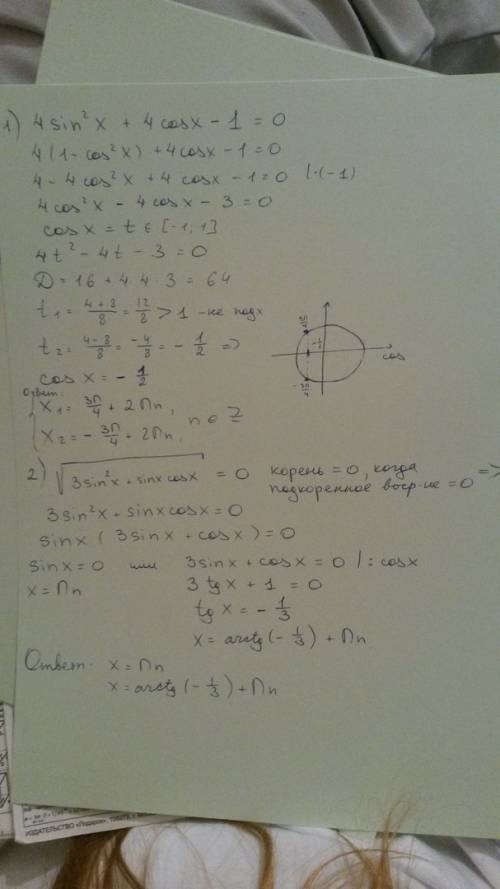 1) 4 sin²x + 4 cosx - 1 = 0
4(1 - cos²x) + 4cosx - 1 = 0
4 - 4cos²x + 4 cosx - 1 = 0 |·(-1)
4cos²x - 4cosx - 3 = 0
cosx = t ∈ [-1; 1]
4t² - 4t - 3 = 0
D = 16 + 4·4·3 = 64
t₁ = (4+8)/8 = 12/8 > 1 - не подх
t₂ = (4-8)/8 = -4/8 = -1/2 =>
cos x = -1/2
3π/4
-1/2
cos
-3π/4
Ответ:
x₁ = 3π/4 + 2πn,
x₂ = -3π/4 + 2πn,
n ∈ Z
2) √(3sin²x + sinx cosx) = 0 корень = 0, когда
подкоренное выр-ие = 0 =>
3sin²x + sinx cosx = 0
sinx (3sinx + cosx) = 0
sinx = 0 или 3sinx + cosx = 0 |: cosx
x = πn 3 tg x + 1 = 0
tg x = -1/3
x = arctg(-1/3) + πn
Ответ: x = πn
x = arctg(-1/3) + πn
ИЗДАТЕЛЬСТВО